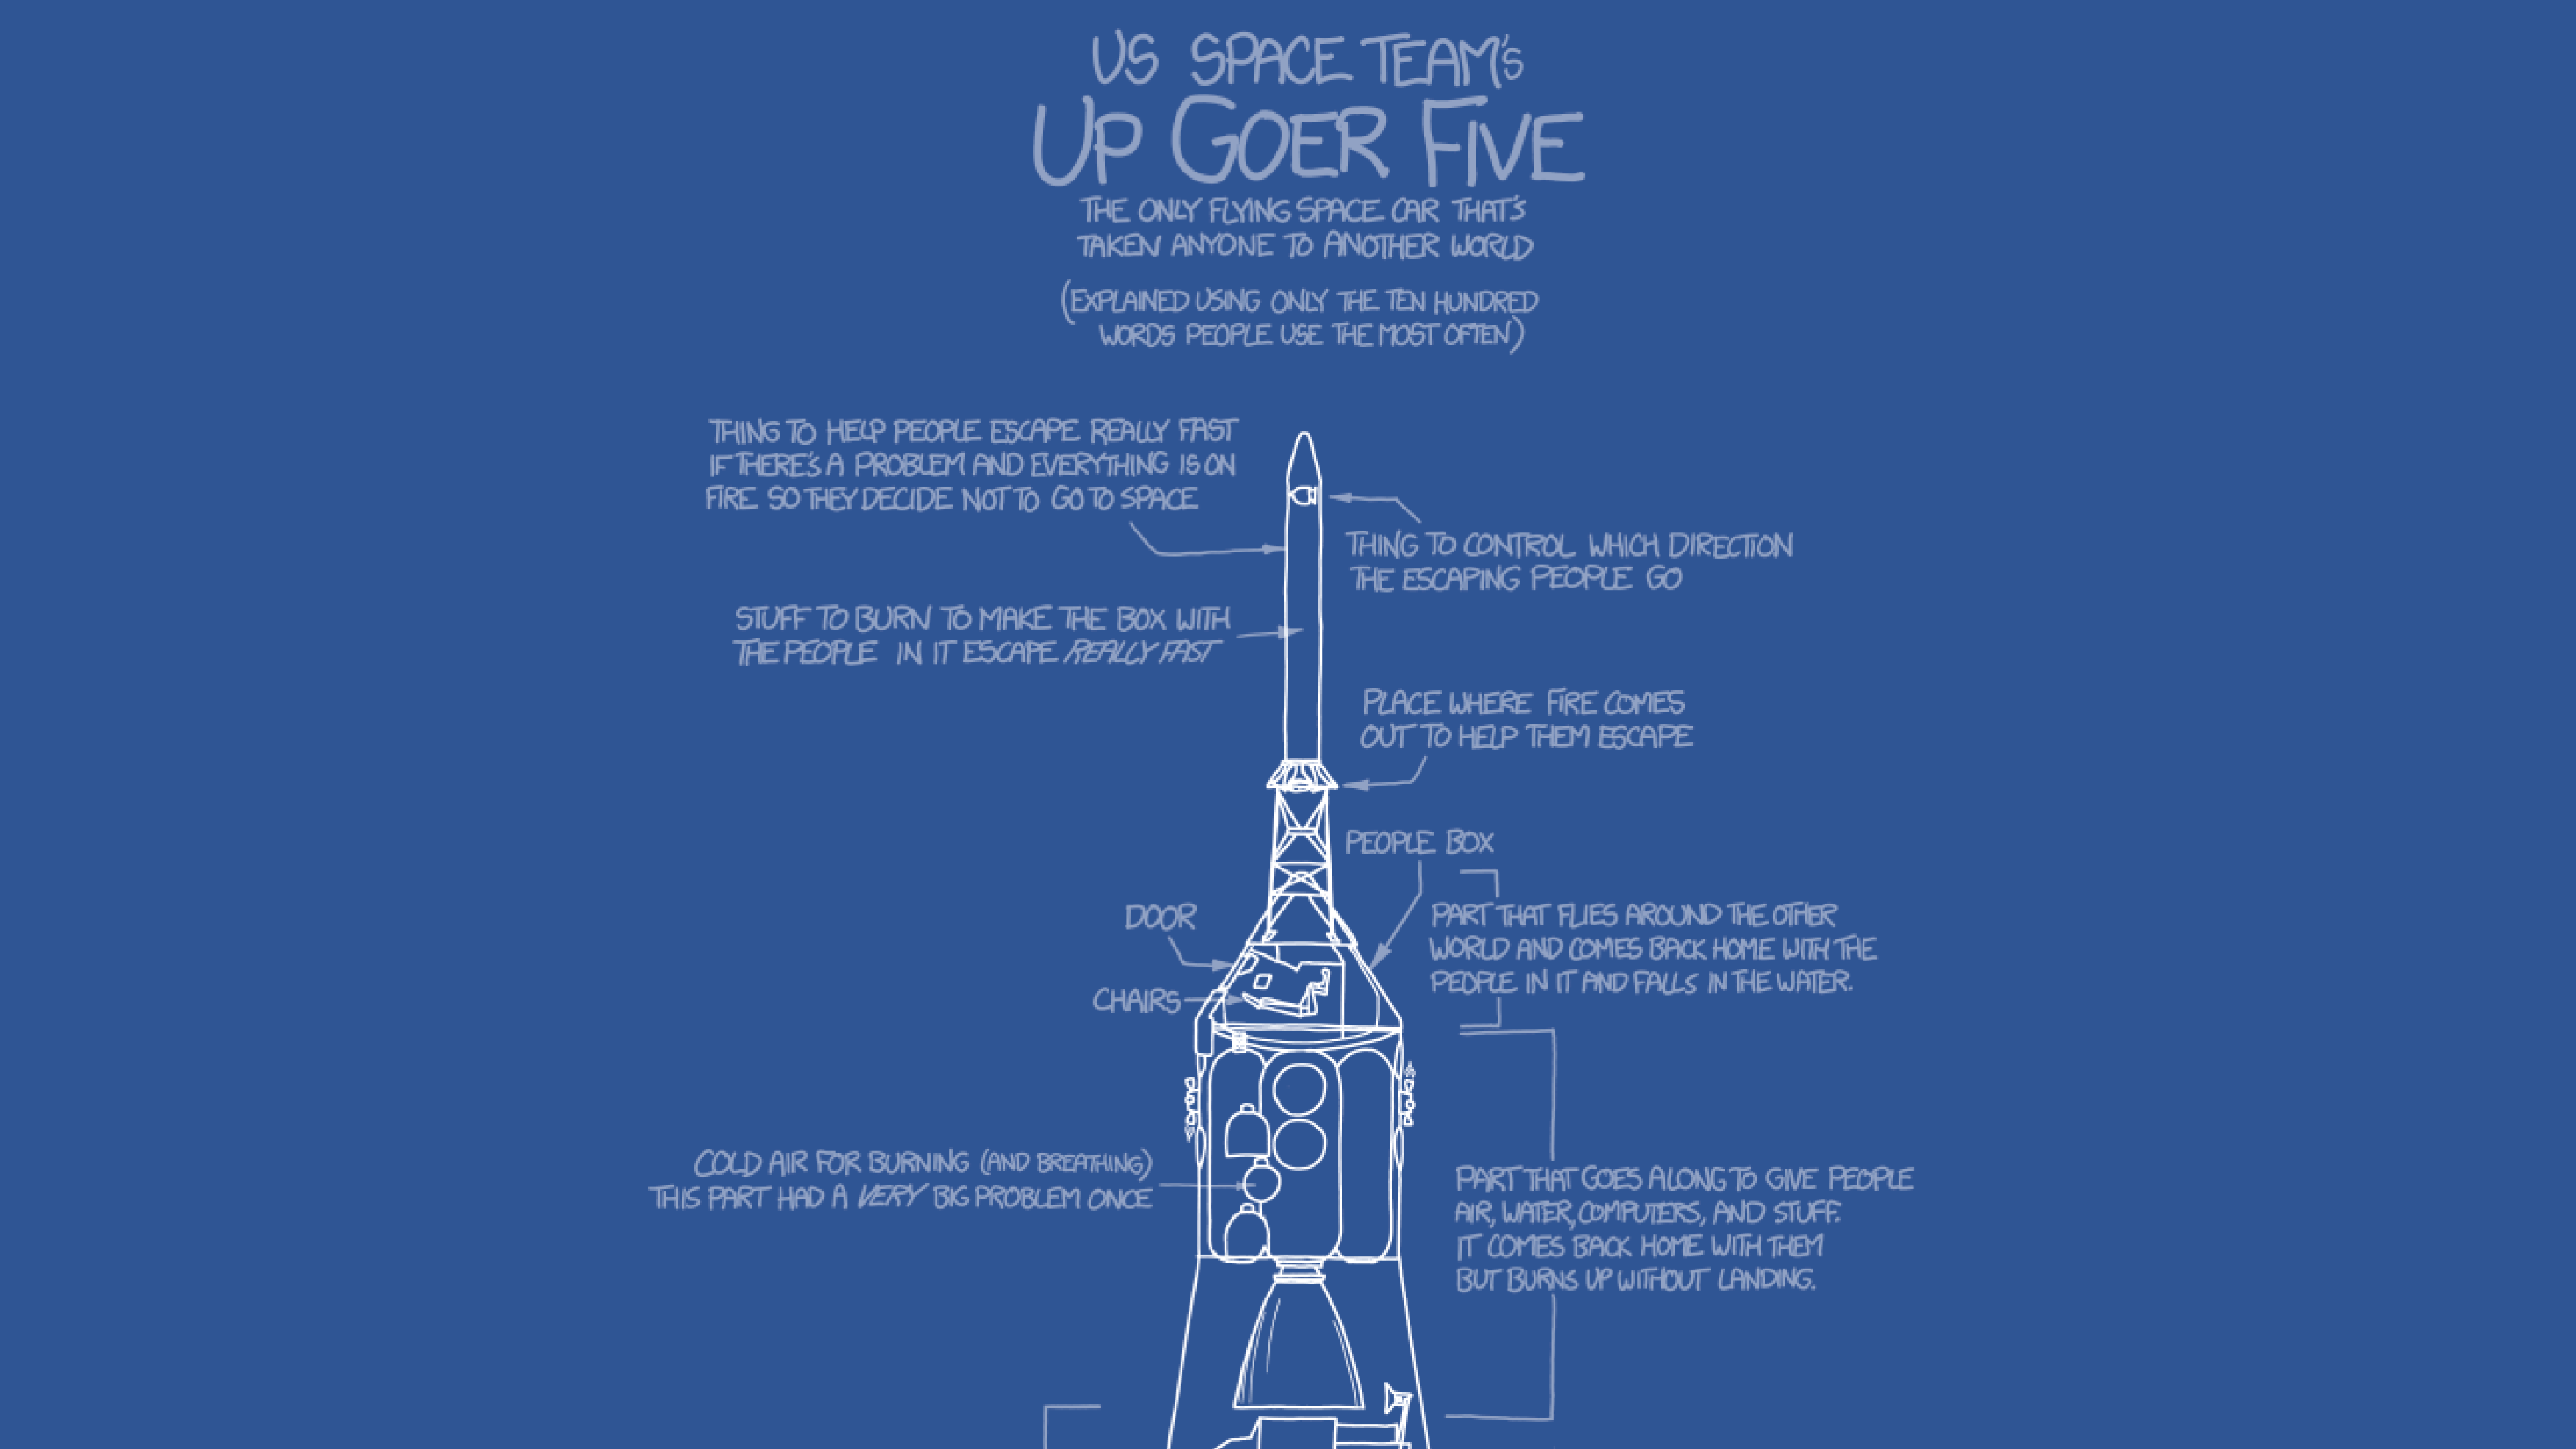 US SPACE TEAM'S
UP GOER FIVE
THE ONLY FLYING SPACE CAR THAT'S
TAKEN ANYONE TO ANOTHER WORLD
(EXPLAINED USING ONLY THE TEN HUNDRED
WORDS PEOPLE USE THE MOST OFTEN)
THING TO HELP PEOPLE ESCAPE REALLY FAST
IF THERE'S A PROBLEM AND EVERYTHING IS ON
FIRE SO THEY DECIDE NOT TO GO TO SPACE
THING TO CONTROL WHICH DIRECTION
THE ESCAPING PEOPLE GO
STUFF TO BURN TO MAKE THE BOX WITH
THE PEOPLE IN IT ESCAPE REALLY FAST
PLACE WHERE FIRE COMES
OUT TO HELP THEM ESCAPE
PEOPLE BOX
DOOR
PART THAT FLIES AROUND THE OTHER
WORLD AND COMES BACK HOME WITH THE
PEOPLE IN IT AND FALLS IN THE WATER.
CHAIRS
COLD AIR FOR BURNING (AND BREATHING)
THIS PART HAD A VERY BIG PROBLEM ONCE
PART THAT GOES ALONG TO GIVE PEOPLE
AIR, WATER, COMPUTERS, AND STUFF.
IT COMES BACK HOME WITH THEM
BUT BURNS UP WITHOUT LANDING.